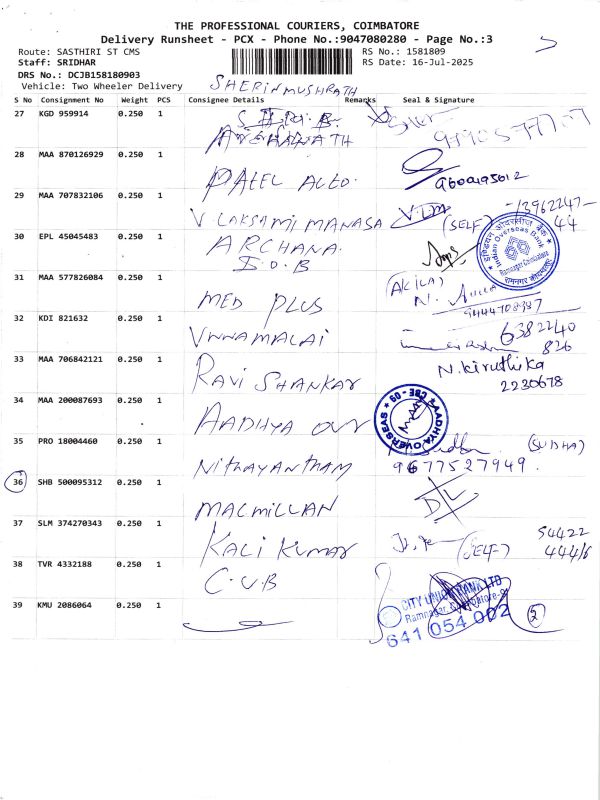 THE PROFESSIONAL COURIERS, COIMBATORE
Delivery Runsheet - PCX - Phone No.:9047080280 - Page No.:3
Route: SASTHIRI ST CMS
RS No.: 1581809
Staff: SRIDHAR
RS Date: 16-Jul-2025
DRS No.: DCJB158180903
Vehicle: Two Wheeler Delivery
SHERINMUSHRATH
S No Consignment No Weight PCS Consignee Details Remarks Seal & Signature
27 KGD 959914 0.250 1
28 MAA 870126929 0.250 1
PATEL AUTO.
9600195012
29 MAA 707832106 0.250 1
V LAKSAMI MANASA
(SELF)
13962247-
44
30 EPL 45045483 0.250 1
ARCHANA.
I.O.B
इण्डियन ओवरसीज़ बैंक
Indian Overseas Bank
Ramnagar Coimbatore
31 MAA 577826084 0.250 1
MED PLUS
(AKILA)
N.
9444708987
32 KDI 821632 0.250 1
UNNAMALAI
6382240
826
33 MAA 706842121 0.250 1
RAVI SHANKAR
N.kiruthika
2230678
34 MAA 200087693 0.250 1
AADHYA OVR
AADHYA OVERSEAS * CBE - 09 *
35 PRO 18004460 0.250 1
NITHAYANTHAM
(SUDHA)
9677527949.
36 SHB 500095312 0.250 1
MACMILLAN
37 SLM 374270343 0.250 1
KALI KUMAR
(SELF)
54422
444/6
38 TVR 4332188 0.250 1
C.U.B
CITY UNION BANK LTD
Ramnagar Coimbatore-9
641 054 002
39 KMU 2086064 0.250 1